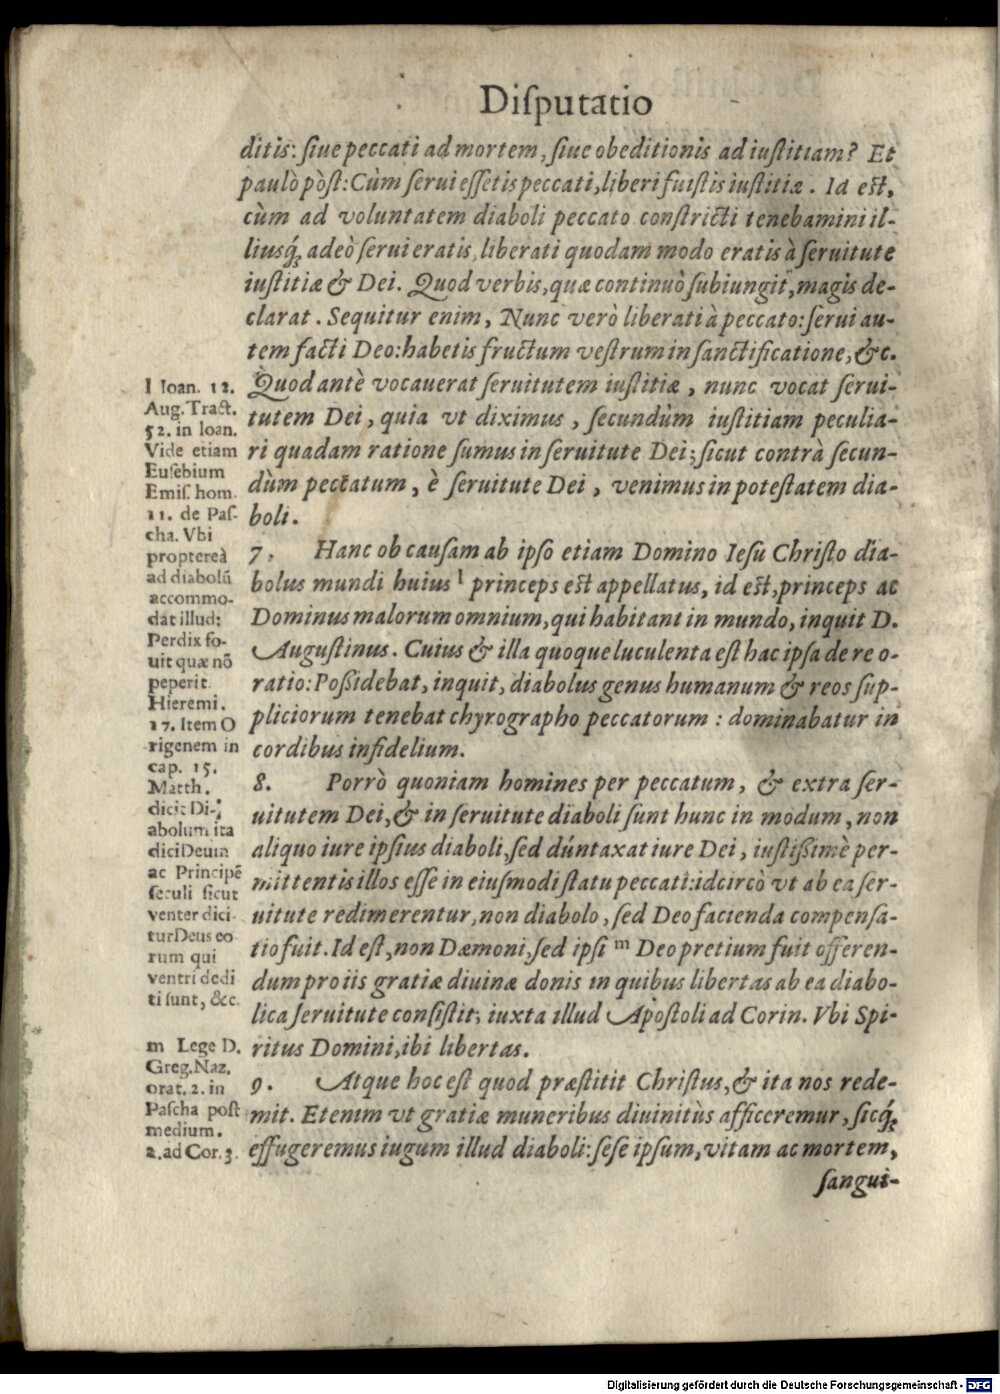 Diſputatio
ditis: ſiue peccati ad mortem, ſiue obeditionis ad iuſtitiam? Et
paulò pòſt: Cùm ſerui eſſetis peccati, liberi fuiſtis iuſtitiæ. Id eſt,
cùm ad voluntatem diaboli peccato conſtricti tenebamini il-
liusq́; adeò ſerui eratis, liberati quodam modo eratis à ſeruitute
iuſtitiæ & Dei. Quod verbis, quæ continuò ſubiungit, magis de-
clarat. Sequitur enim, Nunc verò liberati à peccato: ſerui au-
tem facti Deo: habetis fructum veſtrum in ſanctificatione, &c.
Quod antè vocauerat ſeruitutem iuſtitiæ, nunc vocat ſerui-
tutem Dei, quia vt diximus, ſecundùm iuſtitiam peculia-
ri quadam ratione ſumus in ſeruitute Dei; ſicut contrà ſecun-
dùm peccatum, è ſeruitute Dei, venimus in poteſtatem dia-
boli.
7. Hanc ob cauſam ab ipſo etiam Domino Ieſu Chriſto dia-
bolus mundi huius l princeps eſt appellatus, id eſt, princeps ac
Dominus malorum omnium, qui habitant in mundo, inquit D.
Auguſtinus. Cuius & illa quoque luculenta eſt hac ipſa de re o-
ratio: Poſsidebat, inquit, diabolus genus humanum & reos ſup-
pliciorum tenebat chyrographo peccatorum: dominabatur in
cordibus infidelium.
8. Porrò quoniam homines per peccatum, & extra ſer-
uitutem Dei, & in ſeruitute diaboli ſunt hunc in modum, non
aliquo iure ipſius diaboli, ſed dúntaxat iure Dei, iuſtiſsimè per-
mittentis illos eſſe in eiuſmodi ſtatu peccati: idcircò vt ab ea ſer-
uitute redimerentur, non diabolo, ſed Deo facienda compenſa-
tio fuit. Id eſt, non Dæmoni, ſed ipſi m Deo pretium fuit offeren-
dum pro iis gratiæ diuinæ donis in quibus libertas ab ea diabo-
lica ſeruitute conſiſtit; iuxta illud Apoſtoli ad Corin. Vbi Spi-
ritus Domini, ibi libertas.
9. Atque hoc eſt quod præſtitit Chriſtus, & ita nos rede-
mit. Etenim vt gratiæ muneribus diuinitùs afficeremur, ſicq́;
effugeremus iugum illud diaboli: ſeſe ipſum, vitam ac mortem,
ſangui-
l Ioan. 12.
Aug. Tract.
52. in Ioan.
Vide etiam
Euſebium
Emiſ. hom.
11. de Paſ-
cha. Vbi
propterea
ad diabolũ
accommo-
dat illud:
Perdix fo-
uit quæ nõ
peperit.
Hieremi.
17. Item O
rigenem in
cap. 15.
Matth.
dicit Di-
abolum ita
dici Deum
ac Principẽ
ſeculi ſicut
venter dici
tur Deus eo
rum qui
ventri dedi
ti ſunt, &c.
m Lege D.
Greg. Naz.
orat. 2. in
Paſcha poſt
medium.
2. ad Cor. 3.
Digitalisierung gefördert durch die Deutsche Forschungsgemeinschaft - DFG